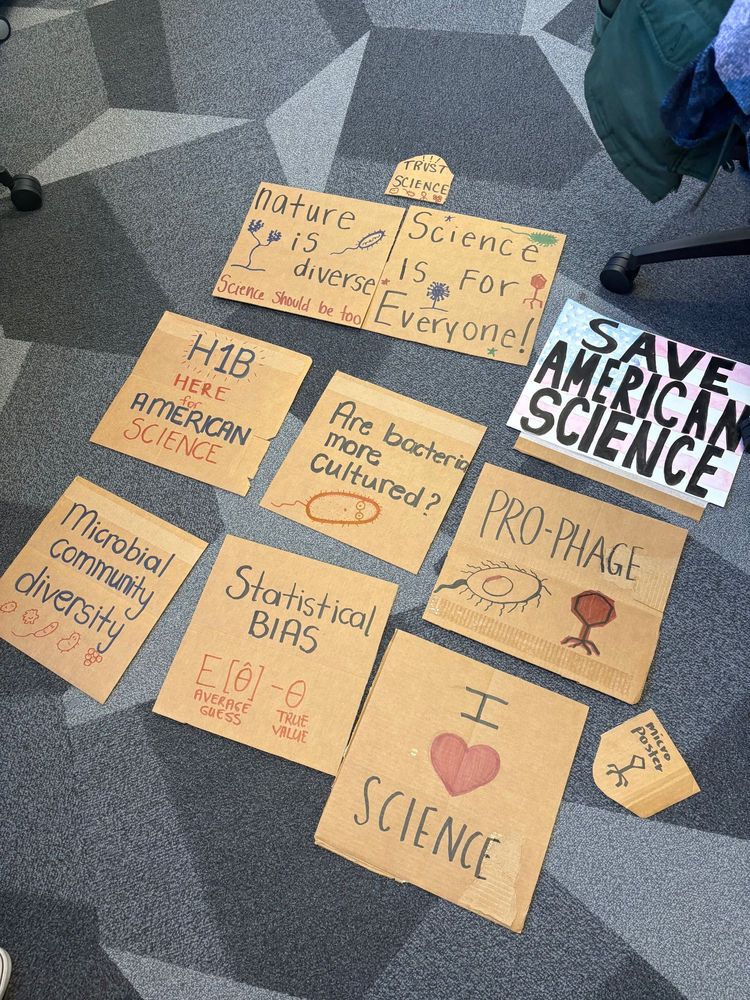 TRUST
SCIENCE
nature
is
diverse
Science should be too
Science
Is For
Everyone!
SAVE
AMERICAN
SCIENCE
H1B
HERE
for
AMERICAN
SCIENCE
Are bacteria
more
cultured?
PRO-PHAGE
Microbial
community
diversity
Statistical
BIAS
E[θ̂] - θ
AVERAGE
GUESS
TRUE
VALUE
I
SCIENCE
micro
Poster